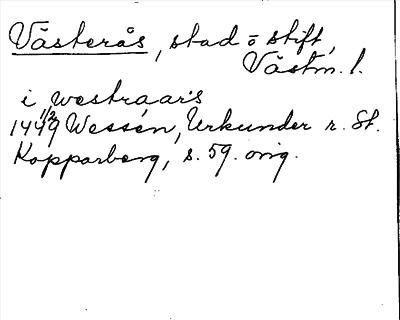 Västerås, stad o stift,
Västm. l.
i westraars
1449 1/2 Wessén, Urkunder r. St.
Kopparberg, s. 59. orig.